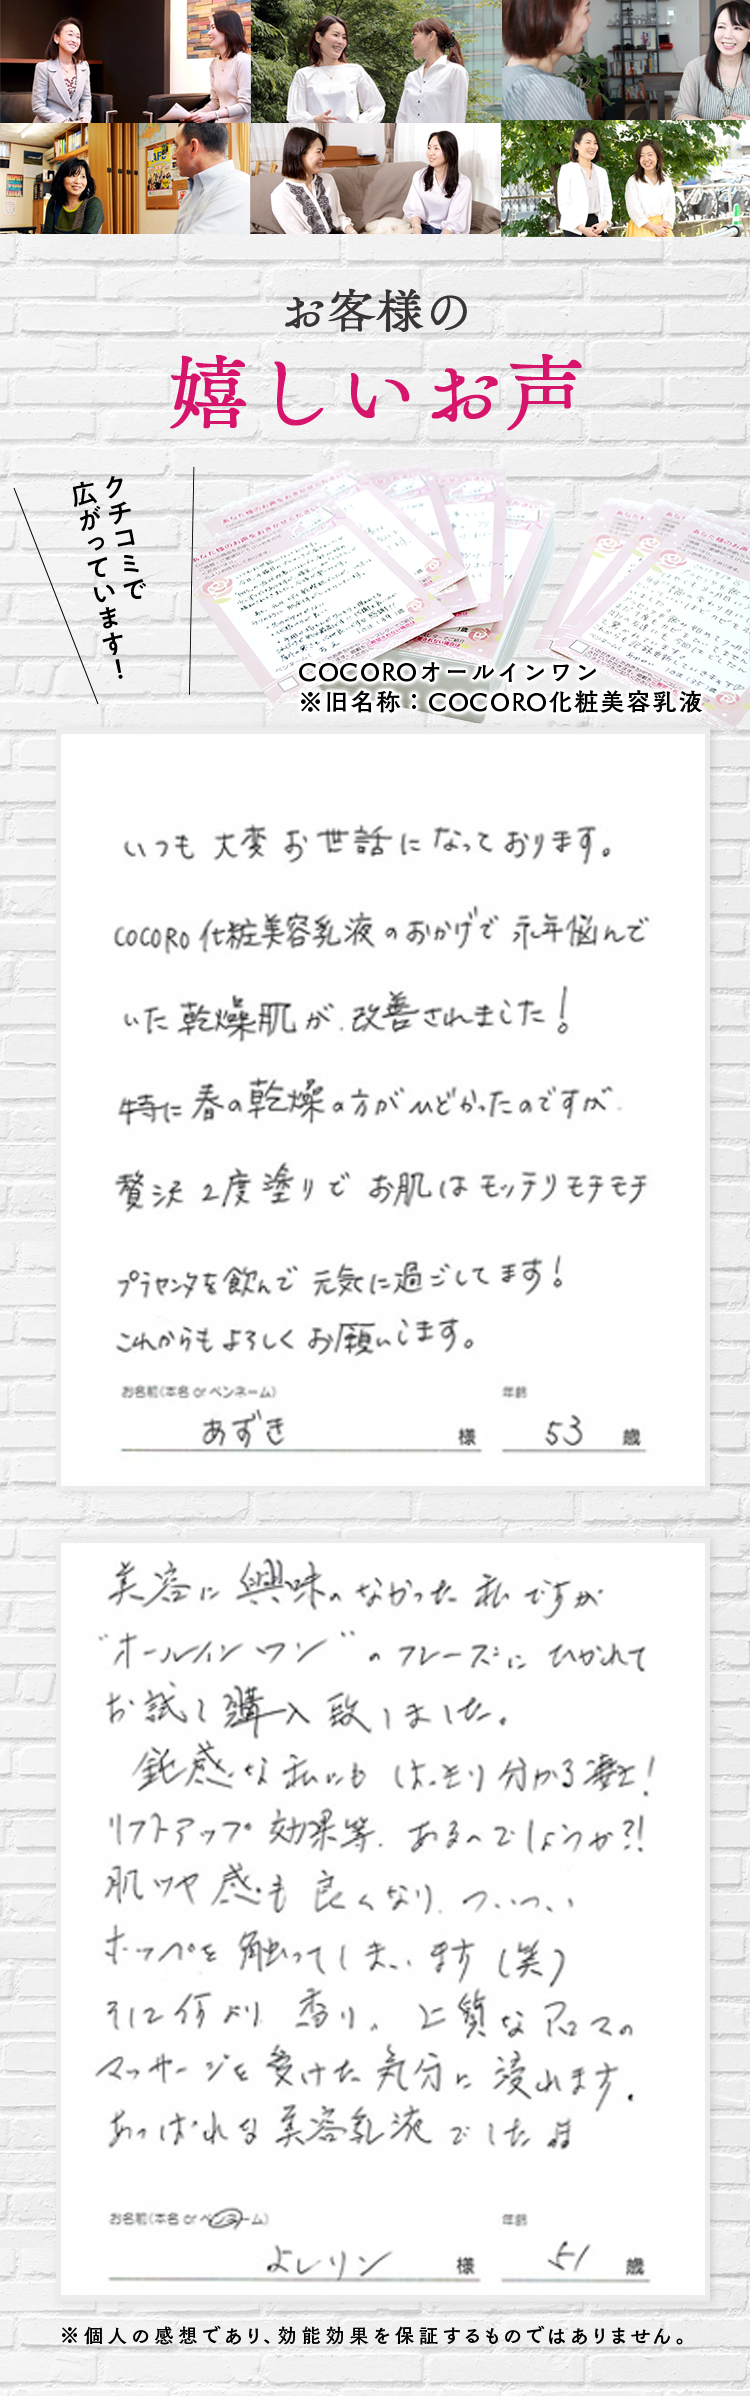 お客様の
嬉しいお声
クチコミで
広がっています!
COCOROオールインワン
※旧名称：COCORO化粧美容乳液
いつも 大変 お世話になっております。
COCORO化粧美容乳液のおかげで 永年悩んで
いた乾燥肌が、改善されました!
特に春の乾燥の方がひどかったのですが、
贅沢2度塗りで お肌はモッテリモチモチ
プラセンタを飲んで 元気に過ごしてます!
これからもよろしくお願いします。
お名前(本名 or ペンネーム) 年齢
あずき 様 53 歳
美容に興味のなかった私ですが
"オールインワン"のフレーズにひかれて
お試し購入致しました。
鈍感な私にも はっきり分かる凄さ!
リフトアップ効果等、あるのでしょうか?!
肌ツヤ感も良くなり、ついつい
ホッペを触ってしまいます(笑)
そして何より、香り。上質なアロマの
マッサージを受けた気分に浸れます。
あっぱれな美容乳液でした
お名前(本名 or ペンネーム) 年齢
よしリン 様 51 歳
※個人の感想であり、効能効果を保証するものではありません。